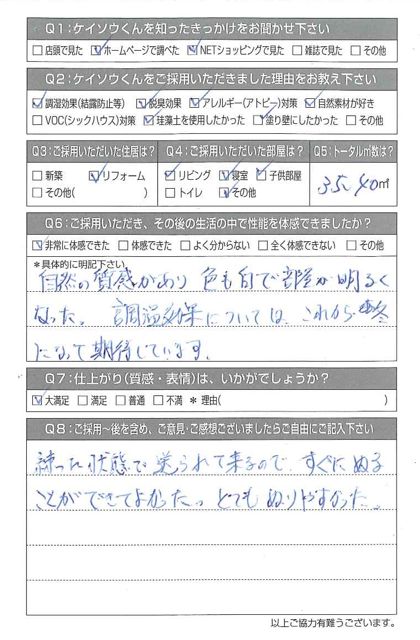 Q1:ケイソウくんを知ったきっかけをお聞かせ下さい
□店頭で見た ☑ホームページで調べた ☑NETショッピングで見た □雑誌で見た □その他
Q2:ケイソウくんをご採用いただきました理由をお教え下さい
☑調湿効果(結露防止等) ☑脱臭効果 ☑アレルギー(アトピー)対策 ☑自然素材が好き
□VOC(シックハウス)対策 ☑珪藻土を使用したかった ☑塗り壁にしたかった □その他
Q3:ご採用いただいた住居は? Q4:ご採用いただいた部屋は? Q5:トータル㎡数は?
□新築 ☑リフォーム ☑リビング ☑寝室 ☑子供部屋 35.40㎡
□その他( ) □トイレ ☑その他
Q6:ご採用いただき、その後の生活の中で性能を体感できましたか?
☑非常に体感できた □体感できた □よく分からない □全く体感できない □その他
*具体的に明記下さい
自然の質感があり 色も白で部屋が明るく
なった。 調湿効果については、これから 冬
になって期待しています。
Q7:仕上がり(質感・表情)は、いかがでしょうか?
☑大満足 □満足 □普通 □不満 *理由( )
Q8:ご採用〜後を含め、ご意見・ご感想ございましたらご自由にご記入下さい
練った状態で送られて来るので、すぐにぬる
ことができてよかった。とてもぬりやすかった。
以上ご協力有難うございます。